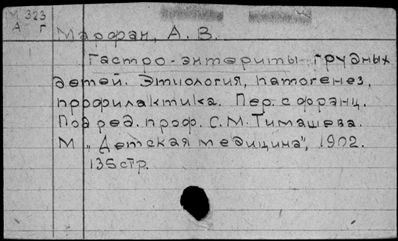 М 323
А Г
Марфан, А. В.
Гастро-энтериты грудных
детей. Этиология, патогенез,
профилактика. Пер. с франц.
Под ред. проф. С. М. Тимашева.
М „Детская медицина", 1902.
135 стр.